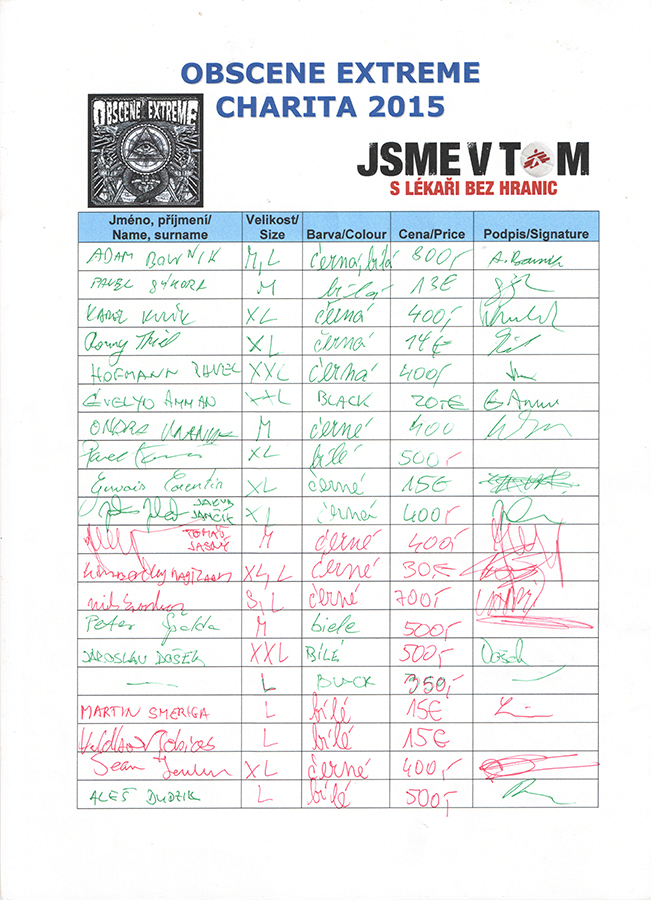 OBSCENE EXTREME
CHARITA 2015
OBSCENE EXTREME
JSME V TOM
S LÉKAŘI BEZ HRANIC
Jméno, příjmení/ Name, surname Velikost/ Size Barva/Colour Cena/Price Podpis/Signature
ADAM M, L černá, bílá 800,-
PAVEL SÝKORA M bílá 13€
KAREL XL černá 400,-
Ronny Thiel XL černá 14€
HOFMANN PAVEL XXL černá 400,-
EVELYO AMMAN XXL BLACK 20€
ONDRA M černé 400
Pavel XL bílé 500,-
Gervais Corentin XL černé 15€
JAKUB JANČÍK XL černé 400,-
TOMÁŠ JASNÝ M černé 400,-
XL, L černé 30€
S, L černé 700,-
Peter M biele 500,-
JAROSLAV DOŠEK XXL BÍLÉ 500,- Došek
— L BLACK 350,- —
MARTIN SMERIGA L bílé 15€
L bílé 15€
Sean XL černé 400,-
ALEŠ DUDZIK L bílé 500,-